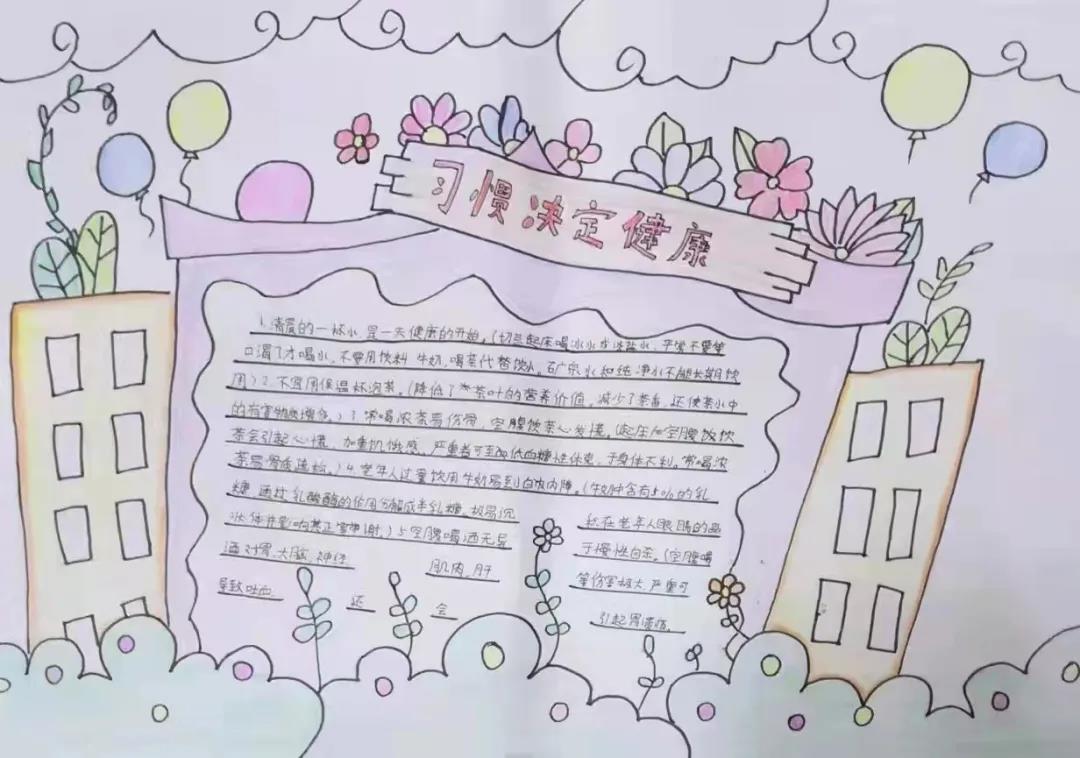 习惯决定健康
1.清晨的一杯水,是一天健康的开始。(切忌起床喝冰水或淡盐水,平常不要等
口渴了才喝水,不要用饮料 牛奶,喝茶代替饮水。矿泉水和纯净水不能长期饮
用)2.不宜用保温杯泡茶。(降低了茶叶的营养价值。减少了茶香,还使茶水中
的有害物质增多。)3.常喝浓茶易伤骨,空腹饮茶心发慌。(起床后空腹饮
茶会引起心慌、加重饥饿感。严重者可至低血糖性休克,于身体不利。常喝浓
茶易骨质疏松。)4.老年人过量饮用牛奶易到白内障。(牛奶中含有5%的乳
糖,通过乳酸酶的作用分解成半乳糖,极易沉 积在老年人眼睛的晶
状体并影响其正常代谢。)5.空腹喝酒无异 于慢性自杀。(空腹喝
酒对胃、大脑、神经 肌肉、肝 等伤害极大,严重可
导致吐血 还 会 引起胃溃疡。